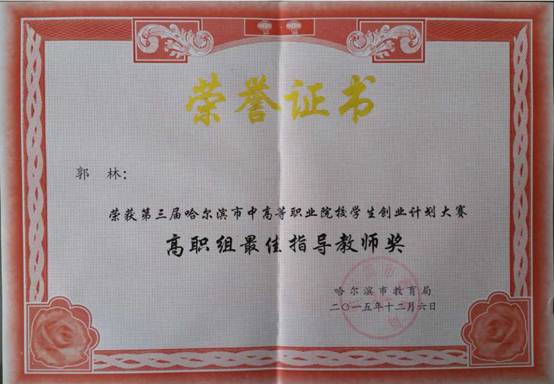 荣誉证书
郭 林：
荣获第三届哈尔滨市中高等职业院校学生创业计划大赛
高职组最佳指导教师奖
哈尔滨市教育局
二〇一五年十二月六日